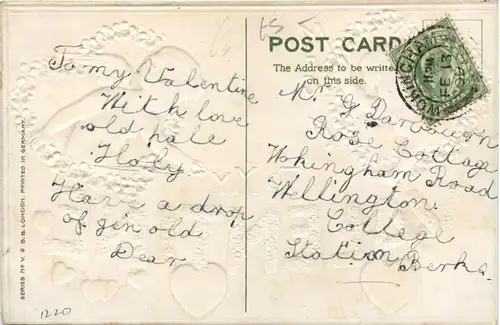 POST CARD
The Address to be written
on this side.
To my Valentine
With love
old pale
Floby
Have a drop
of gin old
Dear
Mr G
Rose Cottage
Wokingham Road
Wellington
College
Station Berks
SERIES Nº V. S B.B. LONDON. PRINTED IN GERMANY.
WOKINGHAM
FE 13
1220